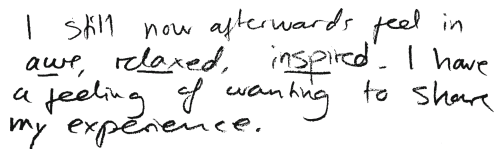 I still now afterwards feel in
awe, relaxed, inspired. I have
a feeling of wanting to share
my experience.